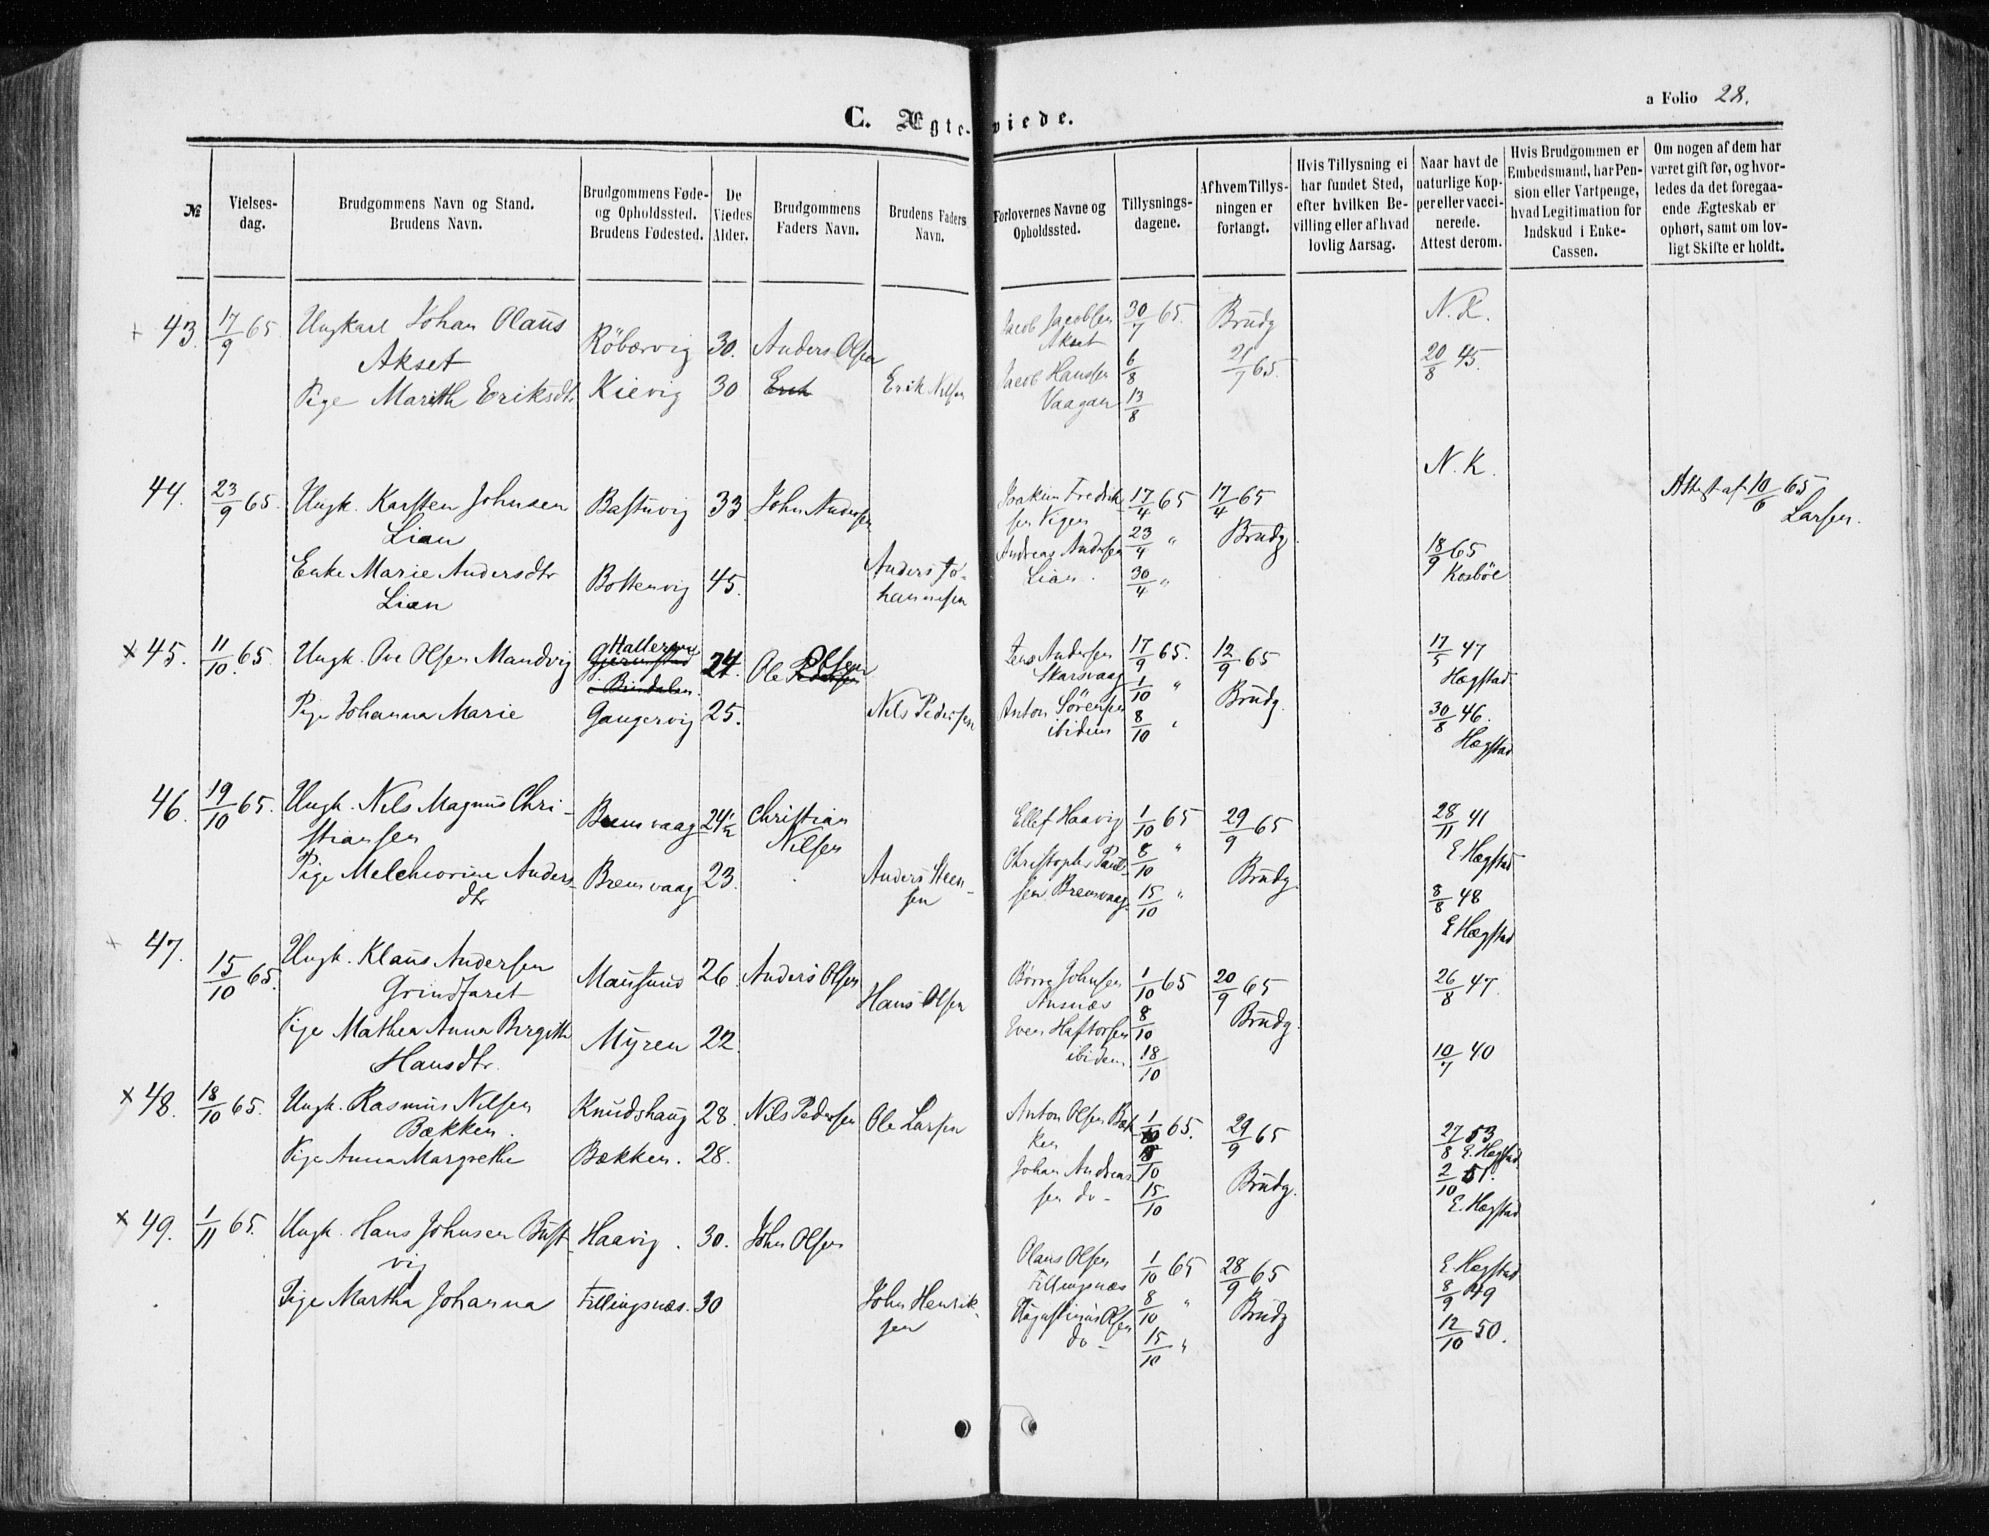 a Folio 28.
C. Ægteviede.
№
Vielses-
dag.
Brudgommens Navn og Stand.
Brudens Navn.
Brudgommens Føde-
og Opholdssted.
Brudens Fødested.
De
Viedes
Alder.
Brudgommens
Faders Navn.
Brudens Faders
Navn.
Forlovernes Navne og
Opholdssted.
Tillysnings-
dagene.
Af hvem Tillys-
ningen er
forlangt.
Hvis Tillysning ei
har fundet Sted,
efter hvilken Be-
villing eller af hvad
lovlig Aarsag.
Naar havt de
naturlige Kop-
per eller vacci-
nerede.
Attest derom.
Hvis Brudgommen er
Embedsmand, har Pen-
sion eller Vartpenge,
hvad Legitimation for
Indskud i Enke-
Cassen.
Om nogen af dem har
været gift før, og hvor-
ledes da det foregaa-
ende Ægteskab er
ophørt, samt om lov-
ligt Skifte er holdt.
43. 17/9 65. Ungkarl Johan Olaus Røbærvig 30. Anders Olsen Jacob Jacobsen 30/7 65. Brudg N. K.
Akset Akset 21/7 65. 20/8 45.
Pige Marith Eriksdtr Kievig 30 Erik Erik Nilsen Jacob Hansen 6/8
Vaagan 13/8
N. K.
44. 23/9 65. Ungk. Karsten Johnsen Bastuvig 33. John Andersen Joakim Fredrik- 17/4 65 17/4 65 Attest af 10/6 65
Lian sen Vigen 23/4 " Brudg. Larsen.
Enke Marie Andersdtr Bottenvig 45. Anders Jo- Andreas Andersen 18/9 65
Lian hannesen Lian. 30/4 " Kosböe
45. 11/10 65. Ungk. Ove Olsen Mandvig 24. Ole Olsen Jens Andersen 17/9 65. 12/9 65 17/5 47
Skarsvaag 1/10 " Hægstad
Pige Johanna Marie Gangervig 25. Nils Pedersen Anton Sörensen Brudg. 30/8 46.
ibidem 8/10 " Hægstad
46. 19/10 65. Ungk. Nils Magnus Chri- Bremsvaag 24 1/2 Christian Ellef Haavig 1/10 65 29/9 65 28/11 41
stiansen Nilsen 8/10 " E Hægstad
Pige Melchiorine Anders- Bremsvaag 23. Anders Steen- Christoph. Paul- Brudg. 8/8 48
dtr sen sen Bremsvaag. 15/10 " E Hægstad
47. 15/10 65. Ungk. Klaus Andersen Mausund 26. Anders Olsen Børre Johnsen 1/10 65 20/9 65 26/8 47.
Grindfaret Hans Olsen Ansnæs 8/10 Brudg.
Pige Mathea Anna Bergitte Myren 22. Even Haftorsen
Hansdtr. ibidem 18/10 10/7 40
48. 18/10 65. Ungk. Rasmus Nilsen Knudshaug 28. Nils Pedersen Ole Larsen Anton Olsen Bæk- 1/10 65. 29/9 65 27/8 53
Bækken. ken 8/10 E. Hægstad
Pige Anna Margrethe Bækken. 28. Johan Andreas- Brudg. 2/10 51.
sen do - 15/10 E. Hægstad
49. 1/11 65. Ungk. Hans Johnsen Bust- Haavig. 30. John Olsen Olaus Olsen 1/10 65 28/9 65 E Hegstad
vig Fillingsnæs 8/9 49
Pige Martha Johanna Fillingsnæs. 30 John Henrik- Augustinus Olsen 8/10 " Brudg 12/10 50.
sen do - 15/10 "